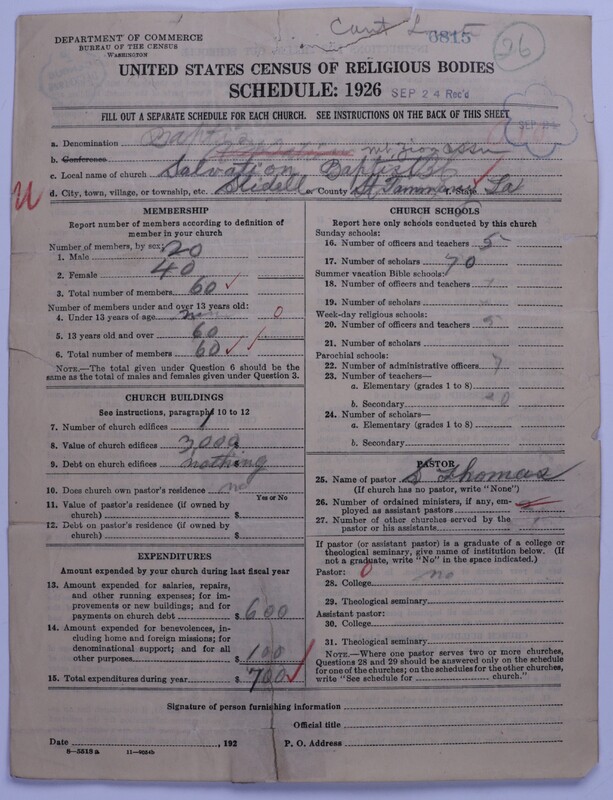 DEPARTMENT OF COMMERCE
BUREAU OF THE CENSUS
WASHINGTON
6815
26
UNITED STATES CENSUS OF RELIGIOUS BODIES
SCHEDULE: 1926 SEP 24 Rec'd
FILL OUT A SEPARATE SCHEDULE FOR EACH CHURCH. SEE INSTRUCTIONS ON THE BACK OF THIS SHEET
a. Denomination Baptist Mt. Zion Assn
b. Conference
c. Local name of church Salvation Baptist
d. City, town, village, or township, etc. Slidell or County St. Tammany State La
MEMBERSHIP
Report number of members according to definition of
member in your church
Number of members, by sex:
1. Male 20
2. Female 40
3. Total number of members 60
Number of members under and over 13 years old:
4. Under 13 years of age no 0
5. 13 years old and over 60
6. Total number of members 60
NOTE.—The total given under Question 6 should be the
same as the total of males and females given under Question 3.
CHURCH BUILDINGS
See instructions, paragraph 10 to 12
7. Number of church edifices 1
8. Value of church edifices $ 3,000
9. Debt on church edifices $ nothing
10. Does church own pastor's residence no
Yes or No
11. Value of pastor's residence (if owned by
church) $
12. Debt on pastor's residence (if owned by
church) $
EXPENDITURES
Amount expended by your church during last fiscal year
13. Amount expended for salaries, repairs,
and other running expenses; for im-
provements or new buildings; and for
payments on church debt $ 600
14. Amount expended for benevolences, in-
cluding home and foreign missions; for
denominational support; and for all
other purposes $ 100
15. Total expenditures during year $ 700
CHURCH SCHOOLS
Report here only schools conducted by this church
Sunday schools:
16. Number of officers and teachers 5
17. Number of scholars 70
Summer vacation Bible schools:
18. Number of officers and teachers
19. Number of scholars
Week-day religious schools:
20. Number of officers and teachers 5
21. Number of scholars
Parochial schools:
22. Number of administrative officers 7
23. Number of teachers—
a. Elementary (grades 1 to 8)
b. Secondary
24. Number of scholars—
a. Elementary (grades 1 to 8)
b. Secondary
PASTOR
25. Name of pastor S Thomas
(If church has no pastor, write "None")
26. Number of ordained ministers, if any, em-
ployed as assistant pastors
27. Number of other churches served by the
pastor or his assistants
If pastor (or assistant pastor) is a graduate of a college or
theological seminary, give name of institution below. (If
not a graduate, write "No" in the space indicated.)
Pastor: 0
28. College no
29. Theological seminary
Assistant pastor:
30. College
31. Theological seminary
NOTE.—Where one pastor serves two or more churches,
Questions 28 and 29 should be answered only on the schedule
for one of the churches; on the schedules for the other churches,
write "See schedule for church."
Signature of person furnishing information
Official title
Date , 192 P. O. Address
8—5518 a 11—9054b